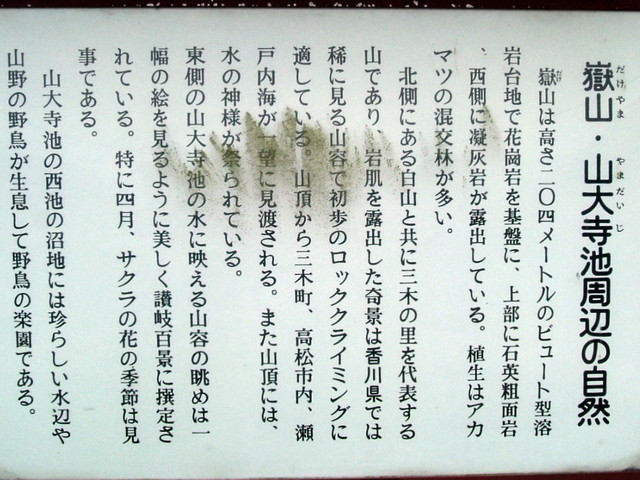 嶽山・山大寺池周辺の自然
だけやま やまだいじ
嶽山は高さ二〇四メートルのビュート型溶
だけ
岩台地で花崗岩を基盤に、上部に石英粗面岩
、西側に凝灰岩が露出している。植生はアカ
マツの混交林が多い。
北側にある白山と共に三木の里を代表する
山であり、岩肌を露出した奇景は香川県では
稀に見る山容で初歩のロッククライミングに
適している。山頂から三木町、高松市内、瀬
戸内海が一望に見渡される。また山頂には、
水の神様が祭られている。
東側の山大寺池の水に映える山容の眺めは一
幅の絵を見るように美しく讃岐百景に撰定さ
れている。特に四月、サクラの花の季節は見
事である。
山大寺池の西池の沼地には珍らしい水辺や
山野の野鳥が生息して野鳥の楽園である。